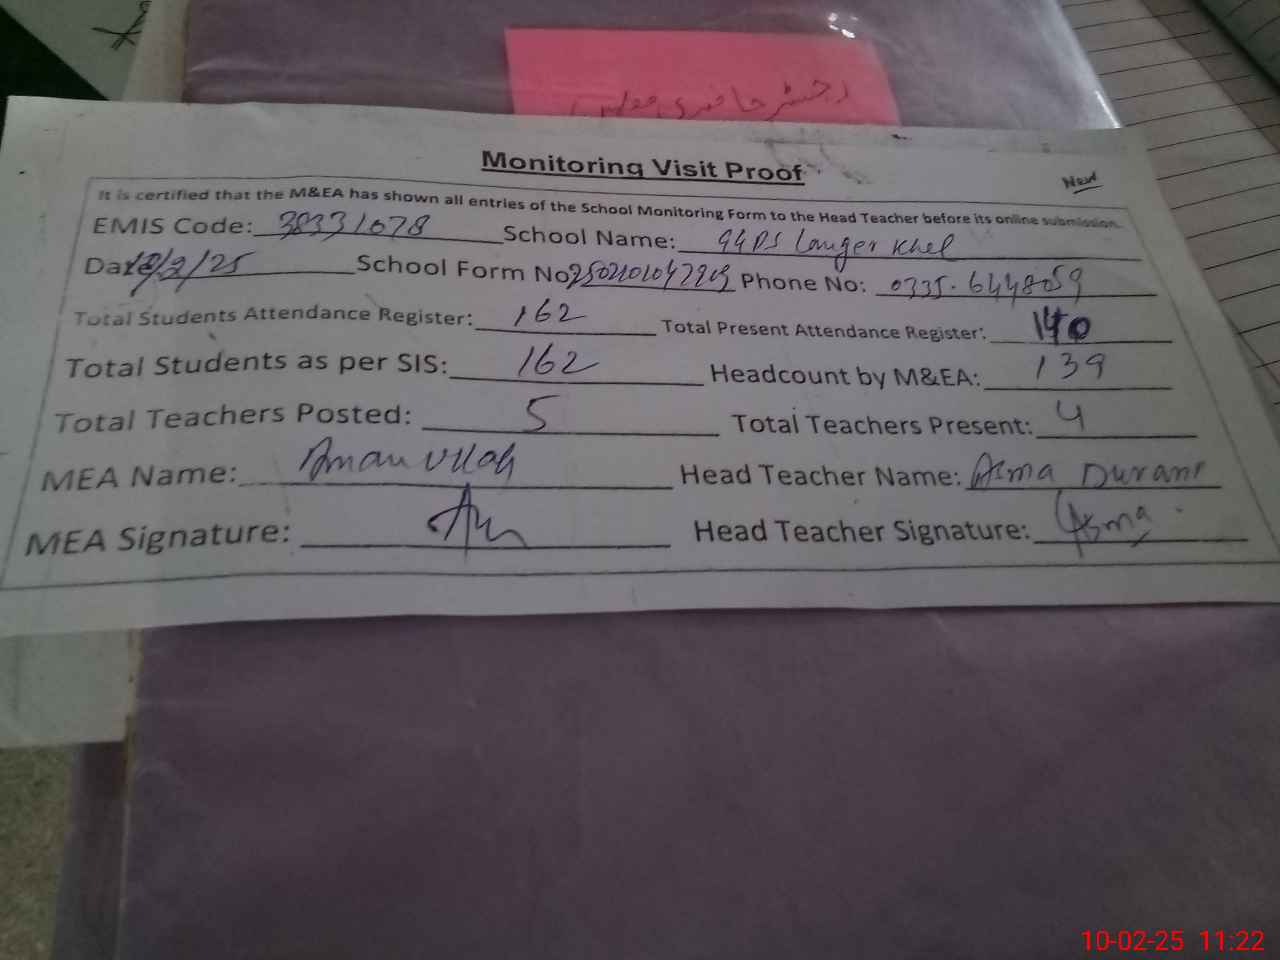 رجسٹر حاضری معلمین
Monitoring Visit Proof
New
It is certified that the M&EA has shown all entries of the School Monitoring Form to the Head Teacher before its online submission.
EMIS Code: 38331078 School Name: GGPS Langer Khel
Date 10/2/25 School Form No Phone No: 0335-6448059
Total Students Attendance Register: 162 Total Present Attendance Register: 140
Total Students as per SIS: 162 Headcount by M&EA: 139
Total Teachers Posted: 5 Total Teachers Present: 4
MEA Name: Aman Ullah Head Teacher Name: Asma Durani
MEA Signature: Head Teacher Signature: Asma
10-02-25 11:22